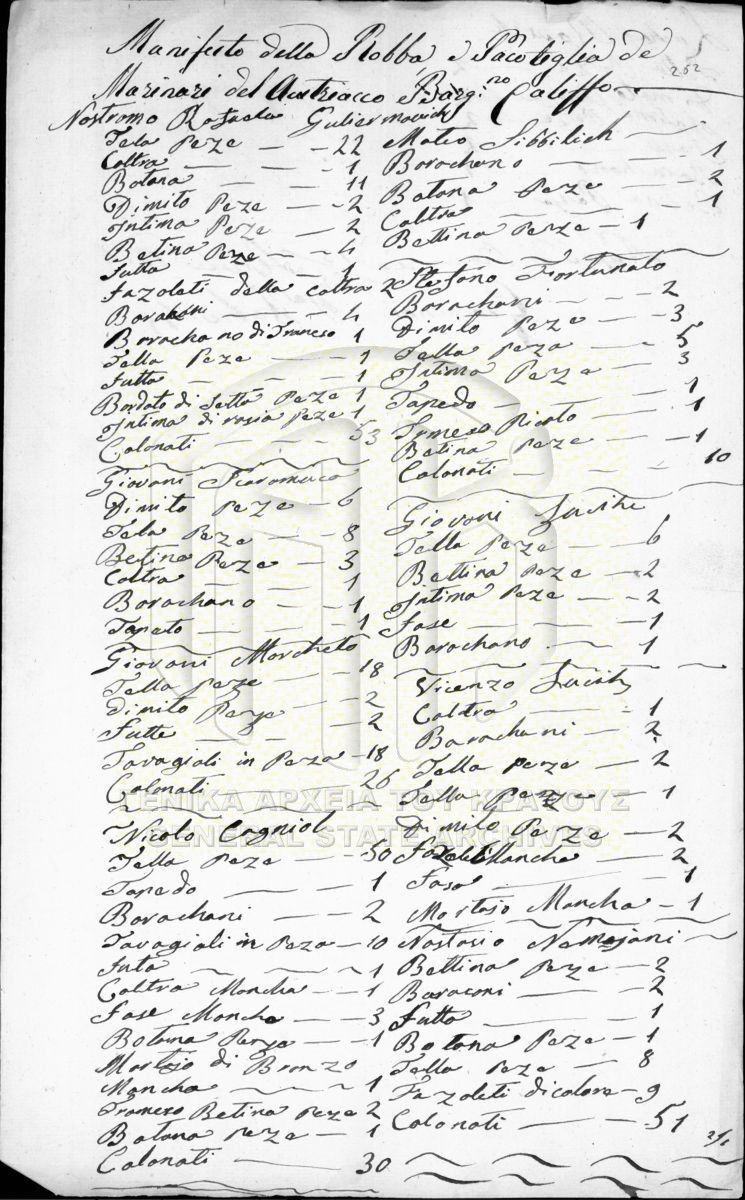 Manifesto della Robba, e Pacotiglia de
Marinari del Austriacco e Barg:no Califfo.
252
Nostromo Rafaela Guliermovich
Tela Peze 22
Coltra 1
Botana 11
Dimito Peze 2
Intima Peze 2
Betina Peze 4
Futta 1
Fazoleti della coltra 2
Borahani 4
Borachano di Francero 1
Tella Peze 1
Futta 1
Bordato di Setta Peze 1
Intima di rasia peze 1
Colonati 53
Giovani Scaramuca
Dimito Peze 6
Tela Peze 8
Betina Peze 3
Coltra 1
Borachano 1
Tapeto 1
Giovani Marcheto
Tella peze 18
Dimito Perze 2
Futte 2
Tavagioli in Peza 18
Colonati 26
Nicolo Cagniol
Tella Peze 50
Tapedo 1
Borachani 2
Tavagioli in Peza 10
Futa 1
Coltra Moncha 1
Fase Monche 3
Botana Perze 1
Mortajo di Bronzo
Moncha 1
Tramezo Betina Peze 2
Botana Peze 1
Colonati 30
Mateo Sibbilich
Borachano 1
Botana Peze 2
Coltra 1
Bettina Perze 1
Stefano Fortunato
Borachani 2
Dimito Peze 3
Tella Peza 5
Intima Peza 3
Tapedo 1
Tramezo Ricoto 1
Betina Peze 1
Colonati 10
Giovani
Tella Peze 6
Bettina Peze 2
Intima Peze 2
Fase 1
Borachano 1
Vicenzo
Coltra 1
Borachani 2
Tella perze 2
Tella Perze 1
Dimito Perze 2
Fazoleti Manche 2
Fasa 1
Mortajo Moncha 1
Nastasio Nemajani
Bettina Perze 2
Baraconi 2
Futta 1
Botana Peze 1
Tella Peze 8
Fazoleti di colore 9
Colonati 51
ΓΕΝΙΚΑ ΑΡΧΕΙΑ ΤΟΥ ΚΡΑΤΟΥΣ
GENERAL STATE ARCHIVES